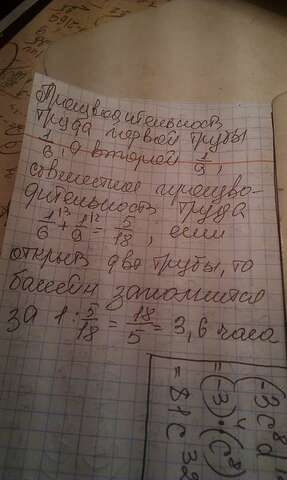 Производительность
труда первой трубы
1/6, а второй 1/9,
совместная произво-
дительность труда
1/6 + 1/9 = 5/18, если
открыть две трубы, то
бассейн заполнится
за 1 : 5/18 = 18/5 = 3,6 часа
= (-3)⁴ · (c⁸
= 81c³²